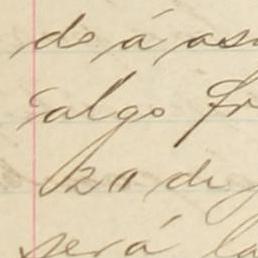 de á as
algo fr
za de
será la